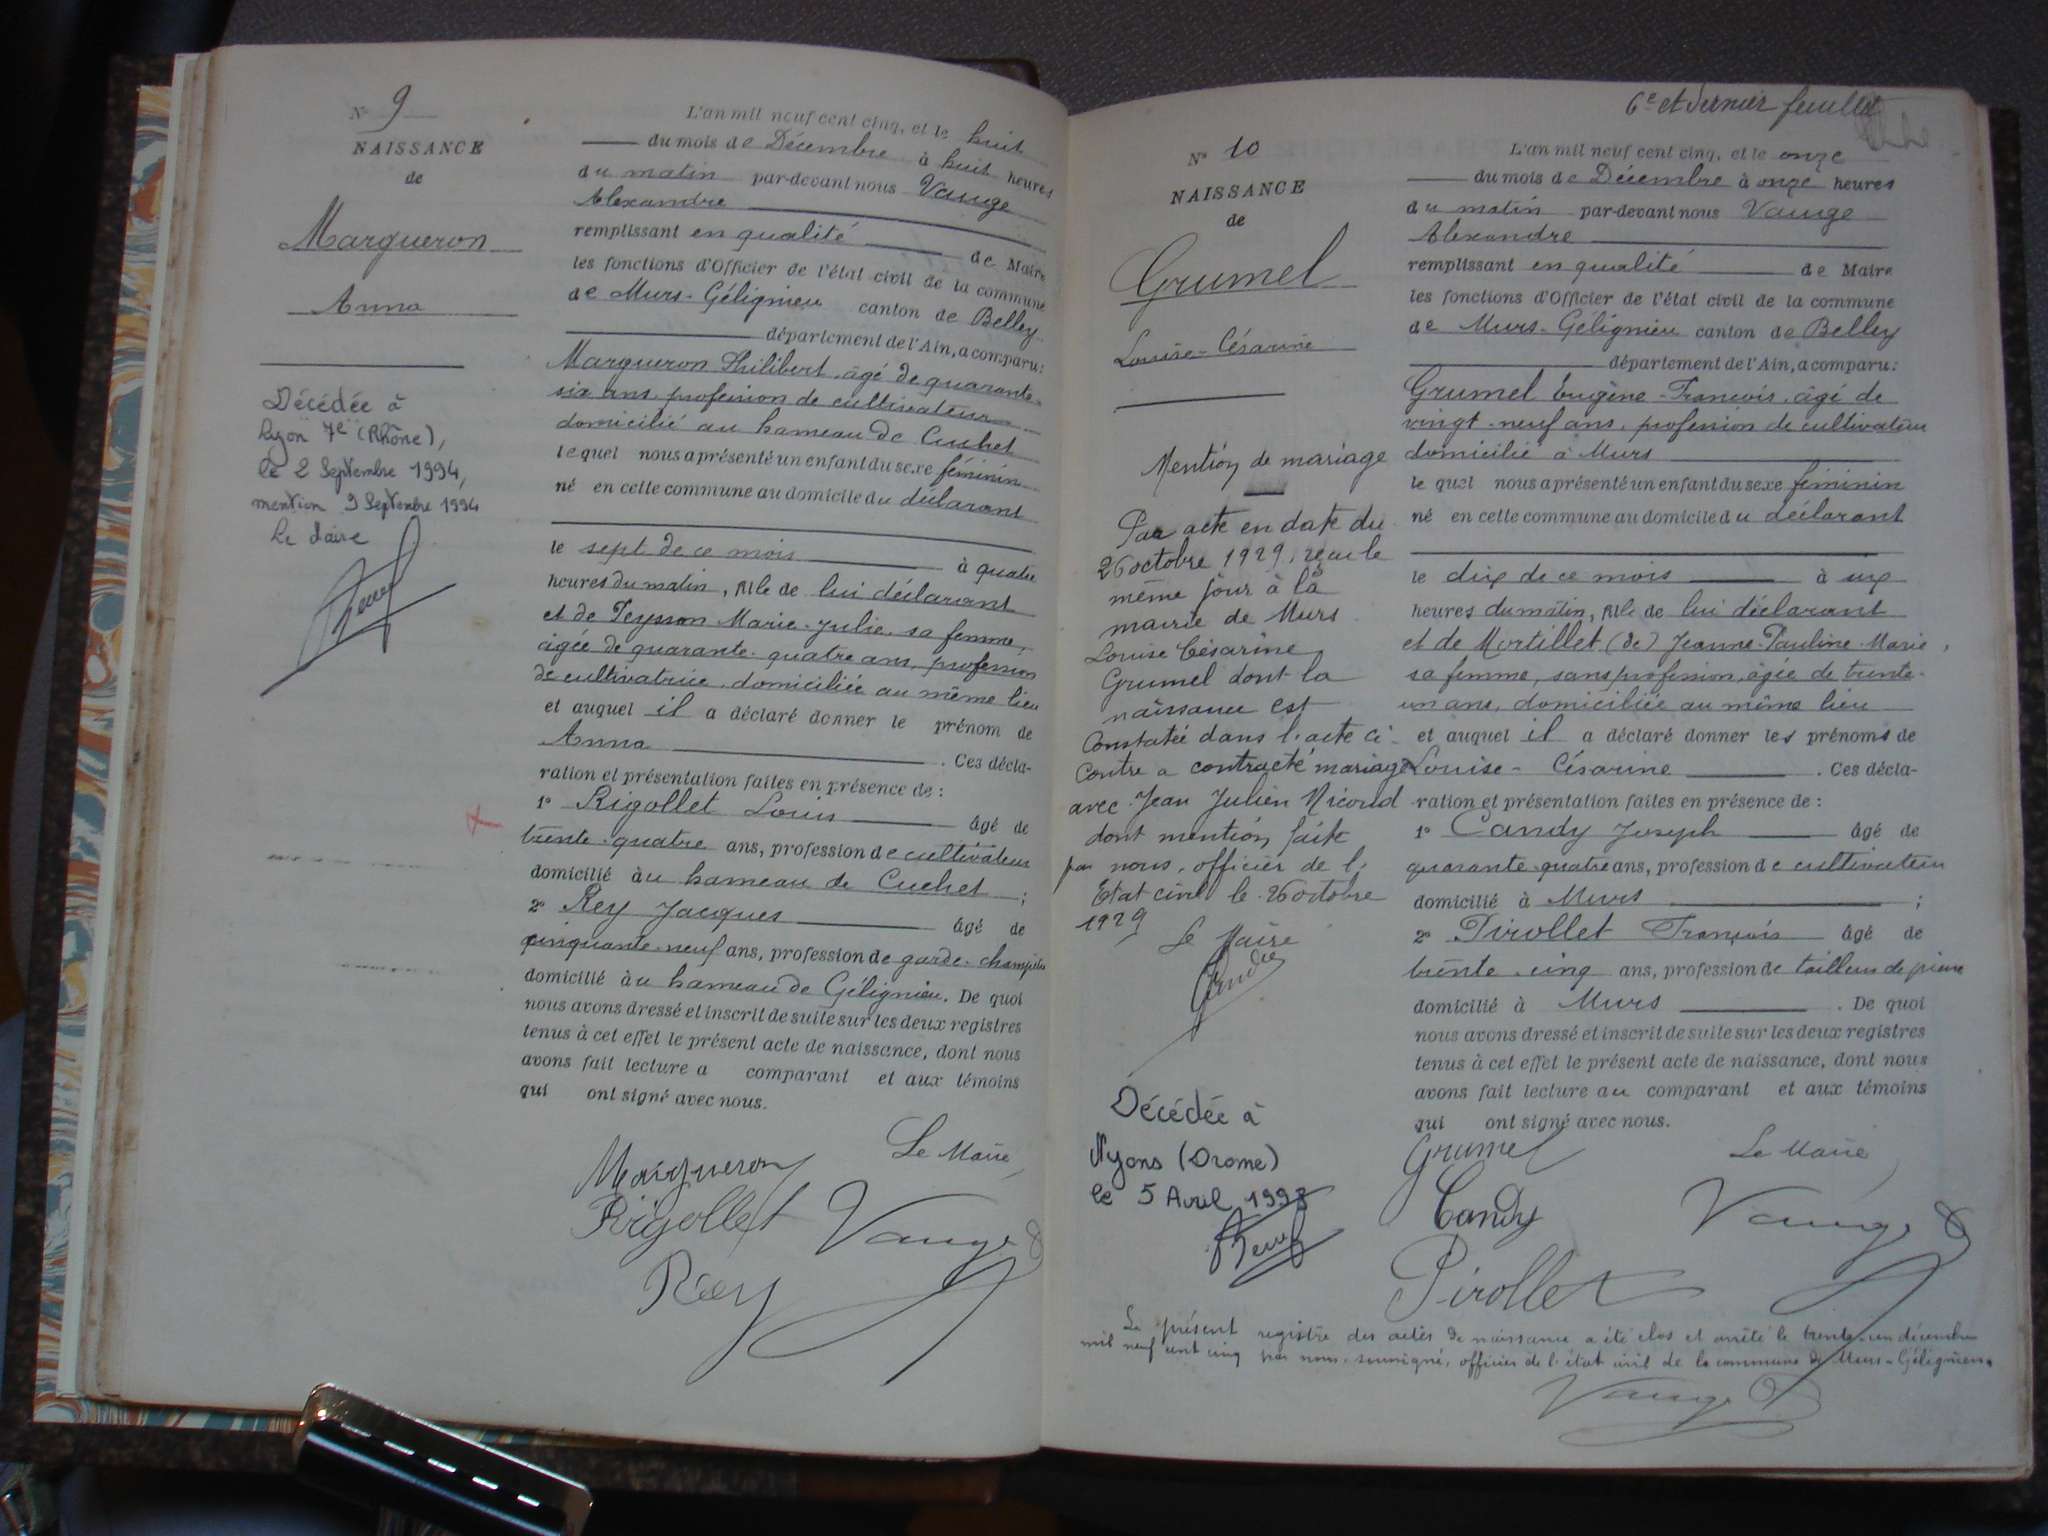 N° 9
NAISSANCE
de
Margueron
Anna
Décédée à
Lyon 7e (Rhône),
le 2 Septembre 1994,
mention 9 Septembre 1994
Le Maire
L'an mil neuf cent cinq, et le huit
du mois de Décembre à huit heures
du matin par-devant nous Vauge
Alexandre
remplissant en qualité de Maire
les fonctions d'Officier de l'état civil de la commune
de Murs-Gélignieu canton de Belley
département de l'Ain, a comparu:
Margueron Philibert, âgé de quarante-
six ans, profession de cultivateur
domicilié au hameau de Cuchet
lequel nous a présenté un enfant du sexe féminin
né en cette commune au domicile du déclarant
le sept de ce mois à quatre
heures du matin, fille de lui déclarant
et de Teysson Marie-Julie, sa femme,
âgée de quarante-quatre ans, profession
de cultivatrice, domiciliée au même lieu
et auquel il a déclaré donner le prénom de
Anna . Ces décla-
ration et présentation faites en présence de :
1° Rigollet Louis âgé de
trente-quatre ans, profession de cultivateur
domicilié au hameau de Cuchet ;
2° Rey Jacques âgé de
cinquante-neuf ans, profession de garde-champêtre
domicilié au hameau de Gélignieu. De quoi
nous avons dressé et inscrit de suite sur les deux registres
tenus à cet effet le présent acte de naissance, dont nous
avons fait lecture a comparant et aux témoins
qui ont signé avec nous.
Le Maire
Margueron
Rigollet Vauge
Rey
6e et dernier feuillet
N° 10
NAISSANCE
de
Grumel
Louise-Césarine
Mention de mariage
Par acte en date du
26 octobre 1929, reçu le
même jour à la
mairie de Murs
Louise Césarine
Grumel dont la
naissance est
Constatée dans l'acte ci-
Contre a contracté mariage
avec Jean Julien Nicoud
dont mention faite
par nous, officier de l'
Etat civil le 26 octobre
1929
Le Maire
Décédée à
Nyons (Drome)
le 5 Avril 1993
L'an mil neuf cent cinq, et le onze
du mois de Décembre à onze heures
du matin par-devant nous Vauge
Alexandre
remplissant en qualité de Maire
les fonctions d'Officier de l'état civil de la commune
de Murs-Gélignieu canton de Belley
département de l'Ain, a comparu:
Grumel Eugène-François, âgé de
vingt-neuf ans, profession de cultivateur
domicilié à Murs
lequel nous a présenté un enfant du sexe féminin
né en cette commune au domicile du déclarant
le dix de ce mois à six
heures du matin, fille de lui déclarant
et de Mortillet (de) Jeanne-Pauline-Marie,
sa femme, sans profession, âgée de trente-
un ans, domiciliée au même lieu
et auquel il a déclaré donner les prénoms de
Louise-Césarine . Ces décla-
ration et présentation faites en présence de :
1° Candy Joseph âgé de
quarante-quatre ans, profession de cultivateur
domicilié à Murs ;
2° Pirollet François âgé de
trente-cinq ans, profession de tailleur de pierre
domicilié à Murs . De quoi
nous avons dressé et inscrit de suite sur les deux registres
tenus à cet effet le présent acte de naissance, dont nous
avons fait lecture au comparant et aux témoins
qui ont signé avec nous.
Grumel Le Maire
Candy Vauge
Pirollet
Le présent registre des actes de naissance a été clos et arrêté le trente-un décembre
mil neuf cent cinq par nous, soussigné, officier de l'état civil de la commune de Murs-Gélignieu.
Vauge